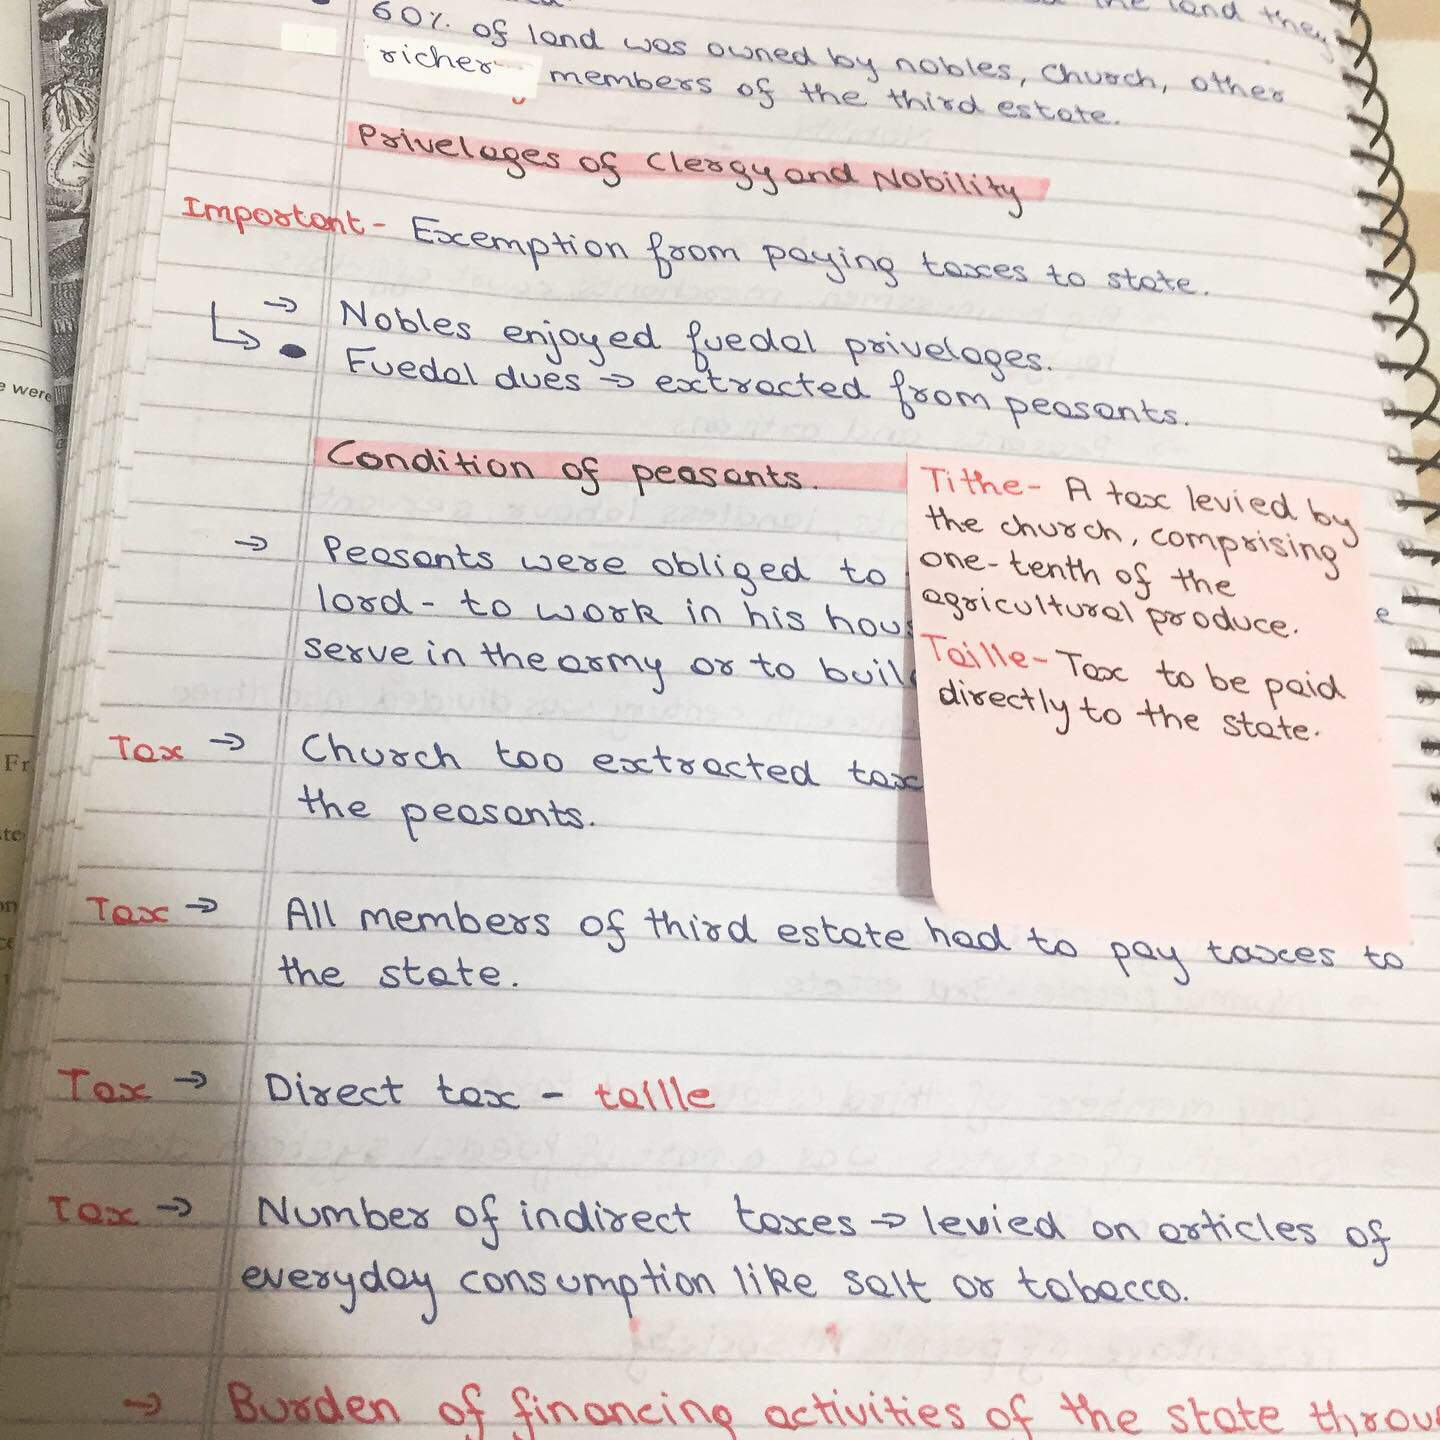 the land they
60% of land was owned by nobles, church, other
richer members of the third estate.
Privelages of Clergy and Nobility
Important - Excemption from paying taxes to state.
→ Nobles enjoyed fuedal privelages.
↳ • Fuedal dues → extracted from peasants.
Condition of peasants.
→ Peasants were obliged to
lord - to work in his hous e
serve in the army or to build
Tax → Church too extracted tax
the peasants.
Tithe - A tax levied by
the church, comprising
one-tenth of the
agricultural produce.
Taille - Tax to be paid
directly to the state.
Tax → All members of third estate had to pay taxces to
the state.
Tax → Direct tax - taille
Tax → Number of indirect taxes → levied on articles of
everyday consumption like salt or tobacco.
→ Burden of financing activities of the state throu
e were
Fr
te
on